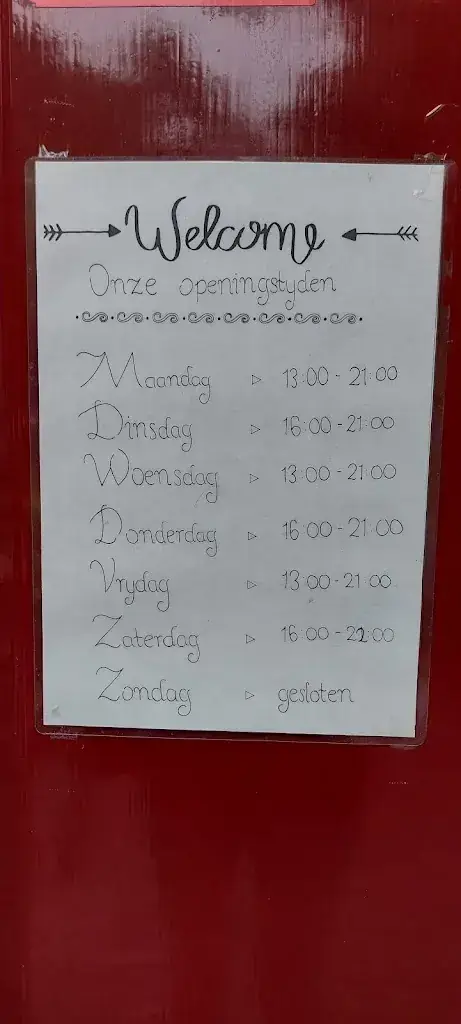 Welcome
Onze openingstyden
Maandag ▷ 13:00 - 21:00
Dinsdag ▷ 16:00 - 21:00
Woensdag ▷ 13:00 - 21:00
Donderdag ▷ 16:00 - 21:00
Vrydag ▷ 13:00 - 21:00
Zaterdag ▷ 16:00 - 22:00
Zondag ▷ gesloten